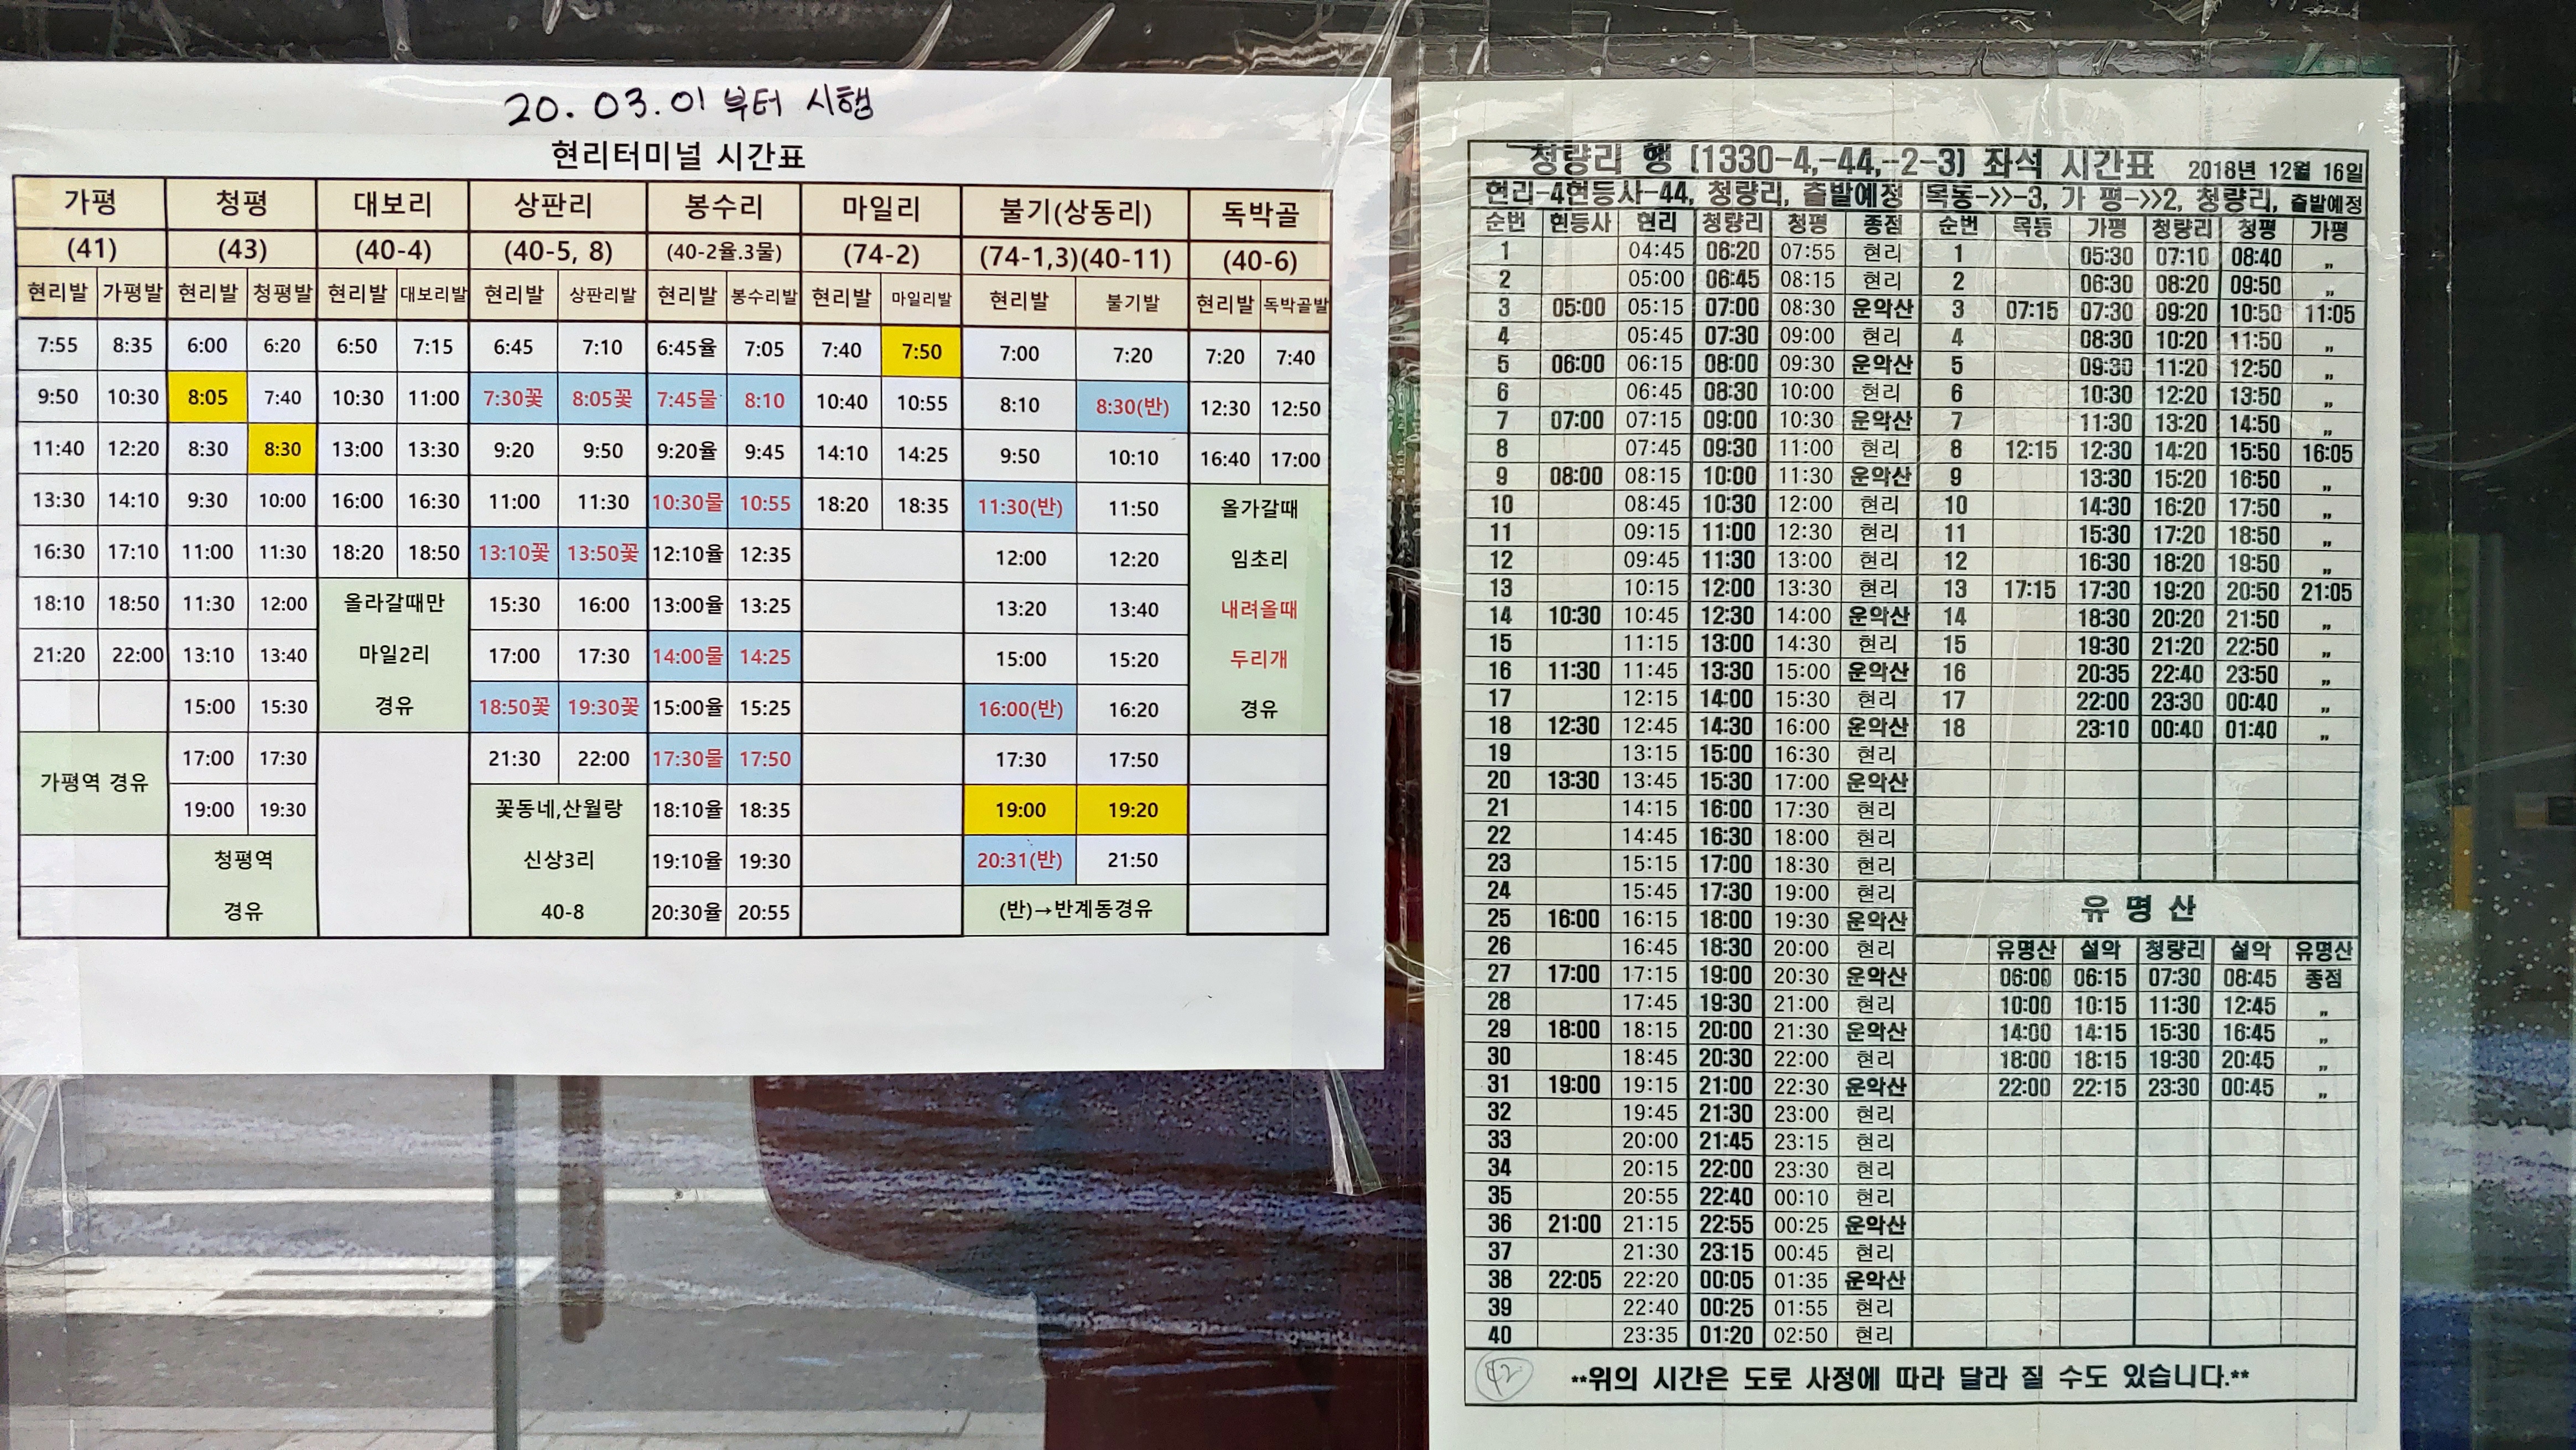 20. 03. 01 부터 시행
현리터미널 시간표
가평 청평 대보리 상판리 봉수리 마일리 불기(상동리) 독박골
(41) (43) (40-4) (40-5, 8) (40-2율.3물) (74-2) (74-1,3)(40-11) (40-6)
현리발 가평발 현리발 청평발 현리발 대보리발 현리발 상판리발 현리발 봉수리발 현리발 마일리발 현리발 불기발 현리발 독박골발
7:55 8:35 6:00 6:20 6:50 7:15 6:45 7:10 6:45율 7:05 7:40 7:50 7:00 7:20 7:20 7:40
9:50 10:30 8:05 7:40 10:30 11:00 7:30꽃 8:05꽃 7:45물 8:10 10:40 10:55 8:10 8:30(반) 12:30 12:50
11:40 12:20 8:30 8:30 13:00 13:30 9:20 9:50 9:20율 9:45 14:10 14:25 9:50 10:10 16:40 17:00
13:30 14:10 9:30 10:00 16:00 16:30 11:00 11:30 10:30물 10:55 18:20 18:35 11:30(반) 11:50 올가갈때
16:30 17:10 11:00 11:30 18:20 18:50 13:10꽃 13:50꽃 12:10율 12:35 12:00 12:20 임초리
18:10 18:50 11:30 12:00 올라갈때만 15:30 16:00 13:00율 13:25 13:20 13:40 내려올때
21:20 22:00 13:10 13:40 마일2리 17:00 17:30 14:00물 14:25 15:00 15:20 두리개
15:00 15:30 경유 18:50꽃 19:30꽃 15:00율 15:25 16:00(반) 16:20 경유
가평역 경유 17:00 17:30 21:30 22:00 17:30물 17:50 17:30 17:50
19:00 19:30 꽃동네,산월랑 18:10율 18:35 19:00 19:20
청평역 신상3리 19:10율 19:30 20:31(반) 21:50
경유 40-8 20:30율 20:55 (반)→반계동경유
청량리 행 (1330-4,-44,-2-3) 좌석 시간표 2018년 12월 16일
현리-4현등사-44, 청량리, 출발예정 목동->>-3, 가 평->>2, 청량리, 출발예정
순번 현등사 현리 청량리 청평 종점 순번 목동 가평 청량리 청평 가평
1 04:45 06:20 07:55 현리 1 05:30 07:10 08:40 „
2 05:00 06:45 08:15 현리 2 06:30 08:20 09:50 „
3 05:00 05:15 07:00 08:30 운악산 3 07:15 07:30 09:20 10:50 11:05
4 05:45 07:30 09:00 현리 4 08:30 10:20 11:50 „
5 06:00 06:15 08:00 09:30 운악산 5 09:30 11:20 12:50 „
6 06:45 08:30 10:00 현리 6 10:30 12:20 13:50 „
7 07:00 07:15 09:00 10:30 운악산 7 11:30 13:20 14:50 „
8 07:45 09:30 11:00 현리 8 12:15 12:30 14:20 15:50 16:05
9 08:00 08:15 10:00 11:30 운악산 9 13:30 15:20 16:50 „
10 08:45 10:30 12:00 현리 10 14:30 16:20 17:50 „
11 09:15 11:00 12:30 현리 11 15:30 17:20 18:50 „
12 09:45 11:30 13:00 현리 12 16:30 18:20 19:50 „
13 10:15 12:00 13:30 현리 13 17:15 17:30 19:20 20:50 21:05
14 10:30 10:45 12:30 14:00 운악산 14 18:30 20:20 21:50 „
15 11:15 13:00 14:30 현리 15 19:30 21:20 22:50 „
16 11:30 11:45 13:30 15:00 운악산 16 20:35 22:40 23:50 „
17 12:15 14:00 15:30 현리 17 22:00 23:30 00:40 „
18 12:30 12:45 14:30 16:00 운악산 18 23:10 00:40 01:40 „
19 13:15 15:00 16:30 현리
20 13:30 13:45 15:30 17:00 운악산
21 14:15 16:00 17:30 현리
22 14:45 16:30 18:00 현리
23 15:15 17:00 18:30 현리
24 15:45 17:30 19:00 현리 유 명 산
25 16:00 16:15 18:00 19:30 운악산
26 16:45 18:30 20:00 현리 유명산 설악 청량리 설악 유명산
27 17:00 17:15 19:00 20:30 운악산 06:00 06:15 07:30 08:45 종점
28 17:45 19:30 21:00 현리 10:00 10:15 11:30 12:45 „
29 18:00 18:15 20:00 21:30 운악산 14:00 14:15 15:30 16:45 „
30 18:45 20:30 22:00 현리 18:00 18:15 19:30 20:45 „
31 19:00 19:15 21:00 22:30 운악산 22:00 22:15 23:30 00:45 „
32 19:45 21:30 23:00 현리
33 20:00 21:45 23:15 현리
34 20:15 22:00 23:30 현리
35 20:55 22:40 00:10 현리
36 21:00 21:15 22:55 00:25 운악산
37 21:30 23:15 00:45 현리
38 22:05 22:20 00:05 01:35 운악산
39 22:40 00:25 01:55 현리
40 23:35 01:20 02:50 현리
42 **위의 시간은 도로 사정에 따라 달라 질 수도 있습니다.**